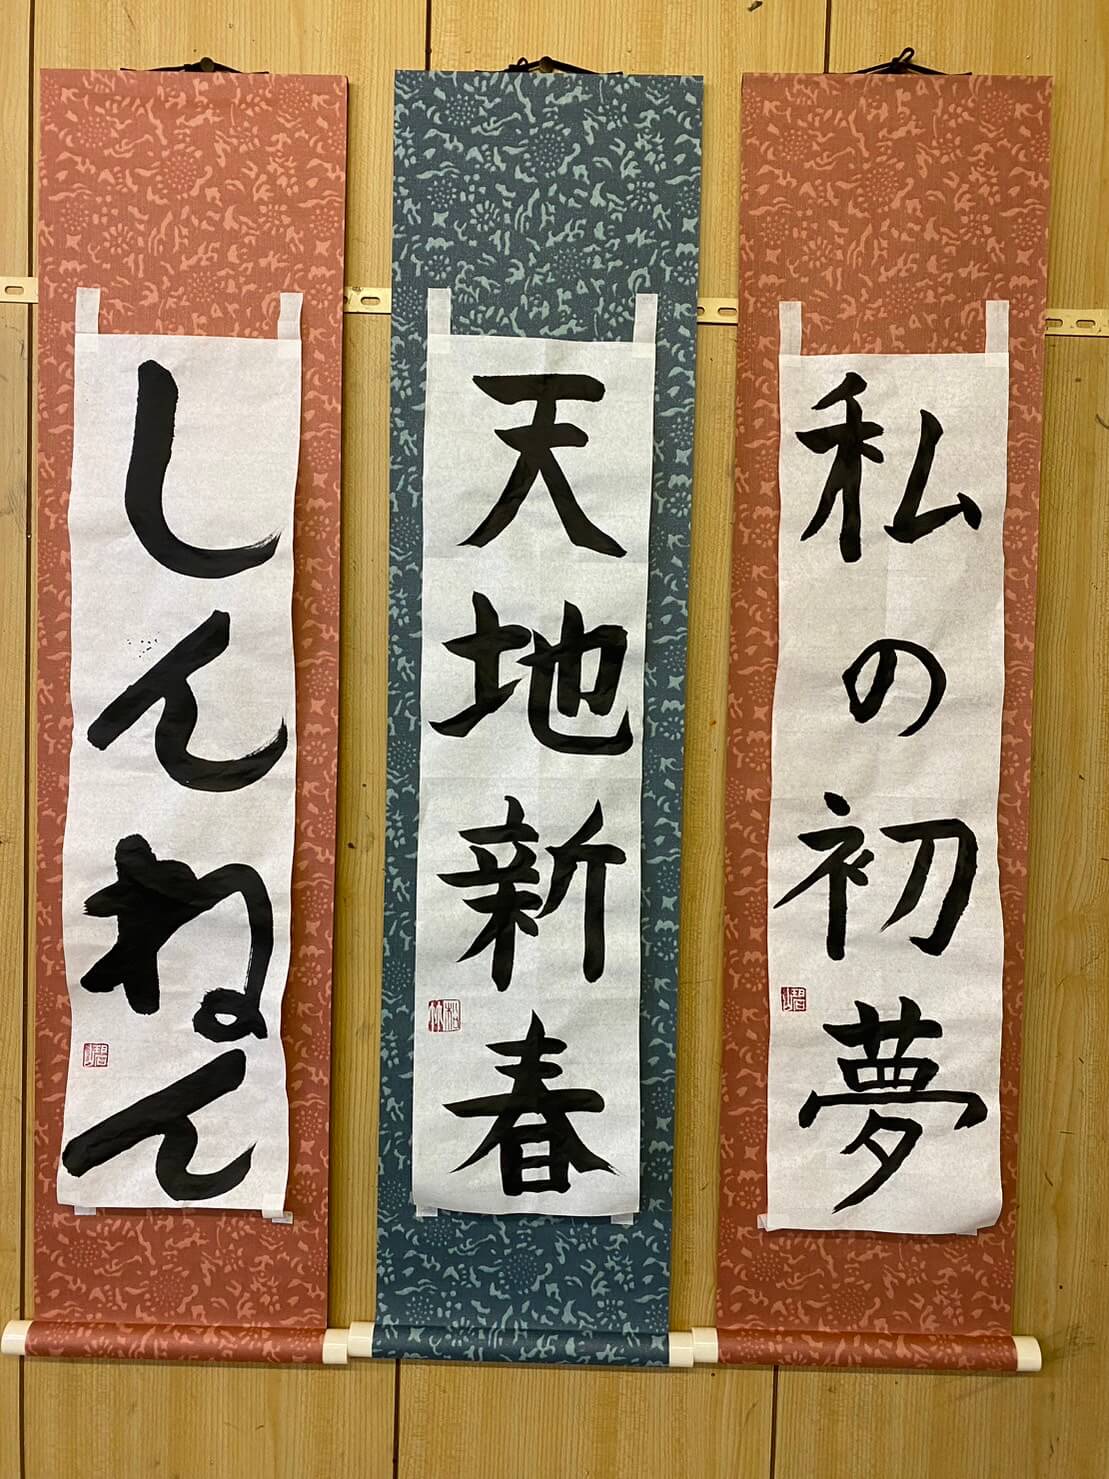 私の初夢
天地新春
しんねん